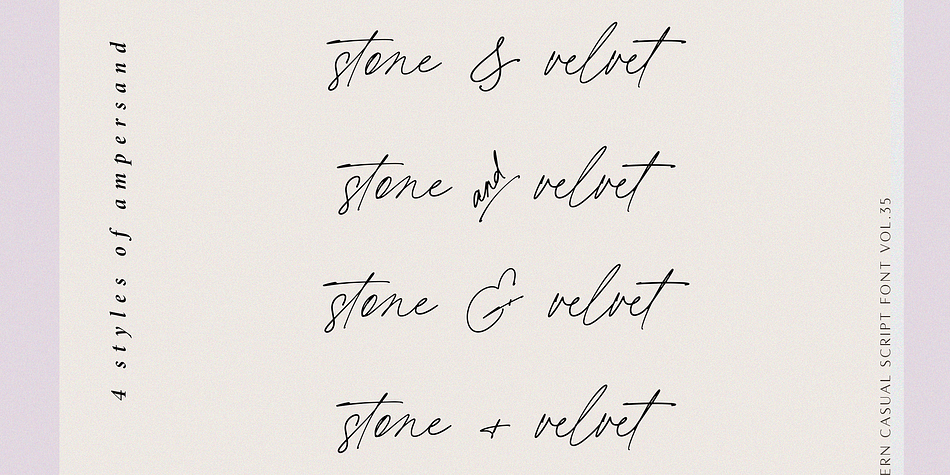 4 styles of ampersand
stone & velvet
stone and velvet
stone & velvet
stone + velvet
CASUAL SCRIPT FONT VOL.35